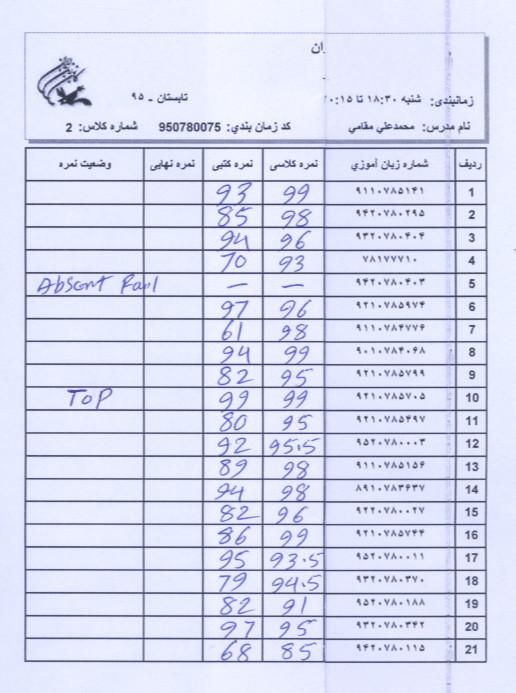 ان
زمانبندی: شنبه ۱۸:۳۰ تا ۲۰:۱۵ تابستان - ۹۵
نام مدرس: محمدعلي مقامي کد زمان بندي: 950780075 شماره کلاس: 2
ردیف شماره زبان آموزي نمره کلاسی نمره کتبی نمره نهایی وضعیت نمره
1 ۹۱۱۰۷۸۵۱۴۱ 99 93
2 ۹۴۲۰۷۸۰۲۹۵ 98 85
3 ۹۳۲۰۷۸۰۴۰۴ 96 94
4 ۷۸۱۷۷۷۱۰ 93 70
5 ۹۴۲۰۷۸۰۴۰۳ — — Absent Fail
6 ۹۲۱۰۷۸۵۹۷۴ 96 97
7 ۹۱۱۰۷۸۴۷۷۶ 98 61
8 ۹۰۱۰۷۸۴۰۶۸ 99 94
9 ۹۲۱۰۷۸۵۷۹۹ 95 82
10 ۹۲۱۰۷۸۵۷۰۵ 99 99 TOP
11 ۹۲۱۰۷۸۵۴۹۷ 95 80
12 ۹۵۲۰۷۸۰۰۰۳ 95.5 92
13 ۹۱۱۰۷۸۵۱۵۶ 98 89
14 ۸۹۱۰۷۸۳۶۳۷ 98 94
15 ۹۲۲۰۷۸۰۰۲۷ 96 82
16 ۹۲۱۰۷۸۵۷۴۴ 99 86
17 ۹۵۲۰۷۸۰۰۱۱ 93.5 95
18 ۹۳۲۰۷۸۰۳۷۰ 94.5 79
19 ۹۵۲۰۷۸۰۱۸۸ 91 82
20 ۹۳۲۰۷۸۰۳۴۲ 95 97
21 ۹۴۲۰۷۸۰۱۱۵ 85 68